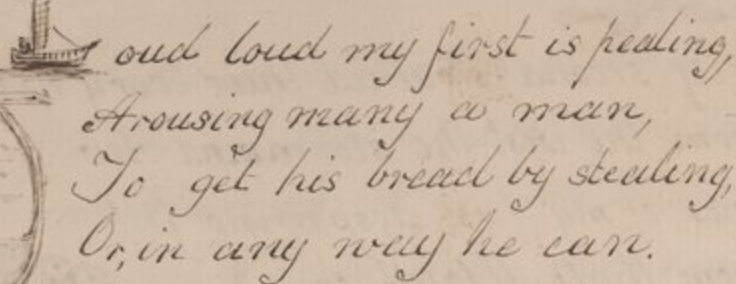 oud loud my first is pealing,
Arousing many a man,
To get his bread by stealing,
Or, in any way he can.